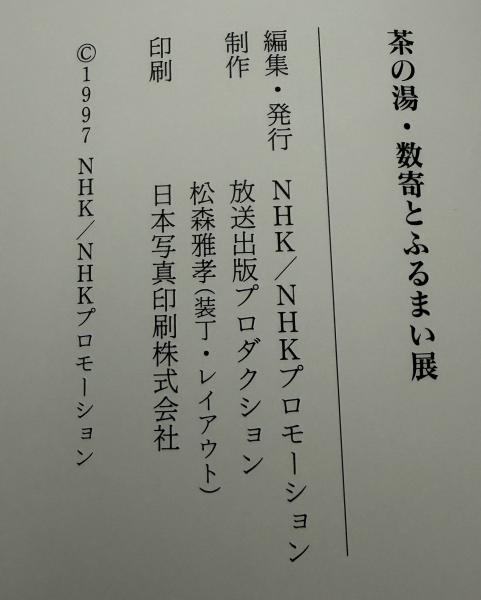 茶の湯・数寄とふるまい展
編集・発行　NHK／NHKプロモーション
制作　放送出版プロダクション
松森雅孝（装丁・レイアウト）
印刷　日本写真印刷株式会社
©1997 NHK／NHKプロモーション